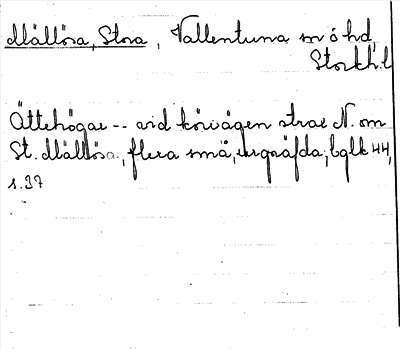 Mällösa, Stora, Vallentuna sn o hd,
Stockh.l
Ättehögar -- vid körvägen strax N. om
St. Mällösa, flera små, urgräfda; bglk 44,
s. 37